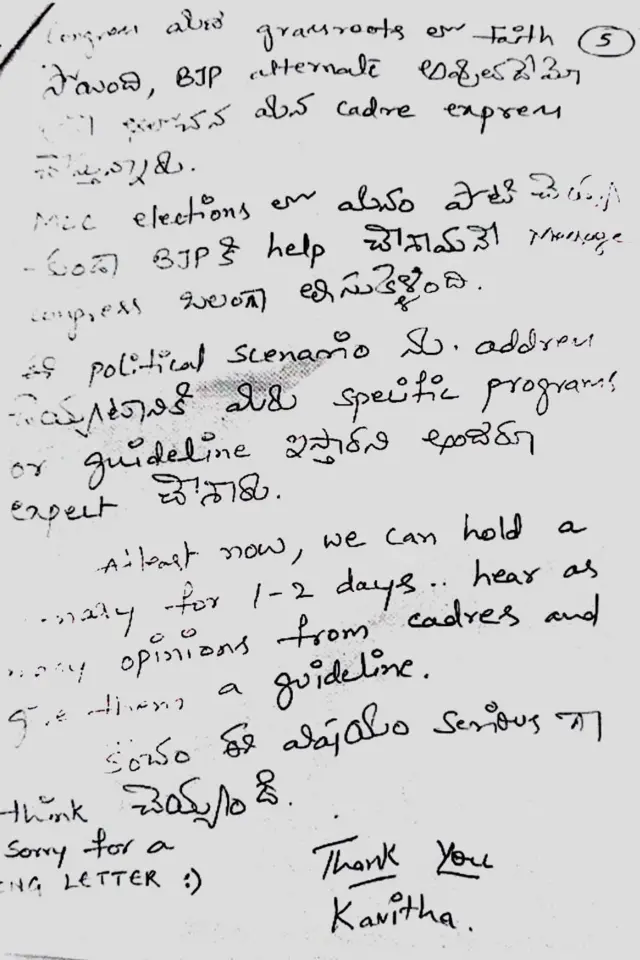 Congress మీద grassroots లో Faith 5
పోయింది, BJP alternate అవ్వబోతుందేమో
మన cadre express
చేస్తున్నారు.
MLC elections లో మనం పోటీ చెయ్య
-కుండా BJP కి help చేశామనే message
congress బలంగా తీసుకెళ్ళింది.
ఈ political scenario ను address
చెయ్యటానికి మీరు specific programs
or guideline ఇస్తారని అందరూ
expect చేశారు.
Atleast now, we can hold a
for 1-2 days.. hear as
many opinions from cadres and
give them a guideline.
కొంచం ఈ విషయం serious గా
think చెయ్యండి.
Sorry for a
NG LETTER :)
Thank You
Kavitha.